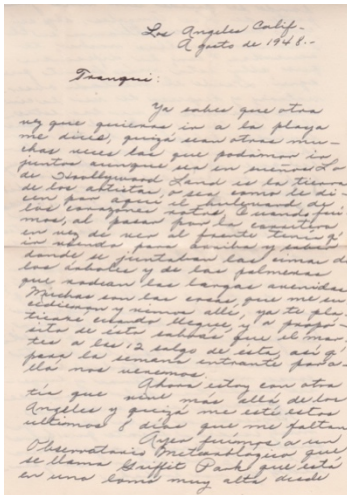 Los Angeles Calif-
Agosto de 1948.-
Tranqui:
Ya sabes que otra
vez que quieras ir a la playa
me dices, quizá sean otras mu-
chas veces las que podamos ir
juntos aunque sea en sueños. La
de Hoollywood Land es la tierra
de los artistas, o sea como le di-
cen por aquí el boulevard de
los corazones rotos. Cuando fui
mos, al pasar por la carretera
en vez de ver al frente tenía q'
ir viendo para arriba y
donde se juntaban las cimas de
los árboles y de las palmeras
que rodean las largas avenidas
Muchas son las cosas que me en
y vimos allí, ya te pla-
ticaré cuando llegue, y a propó-
sito de ésto sabrás que el mar-
tes a las 12 salgo de ésta, así q'
para la semana entrante por a-
llá nos veremos.
Ahora estoy con otra
tía que vive más allá de los
Angeles y quizá me esté estos
ultimos 8 días que me faltan
Ayer fuimos a un
Observatorio Meteorológico que
se llama Griffit Park que está
en una loma muy alta desde